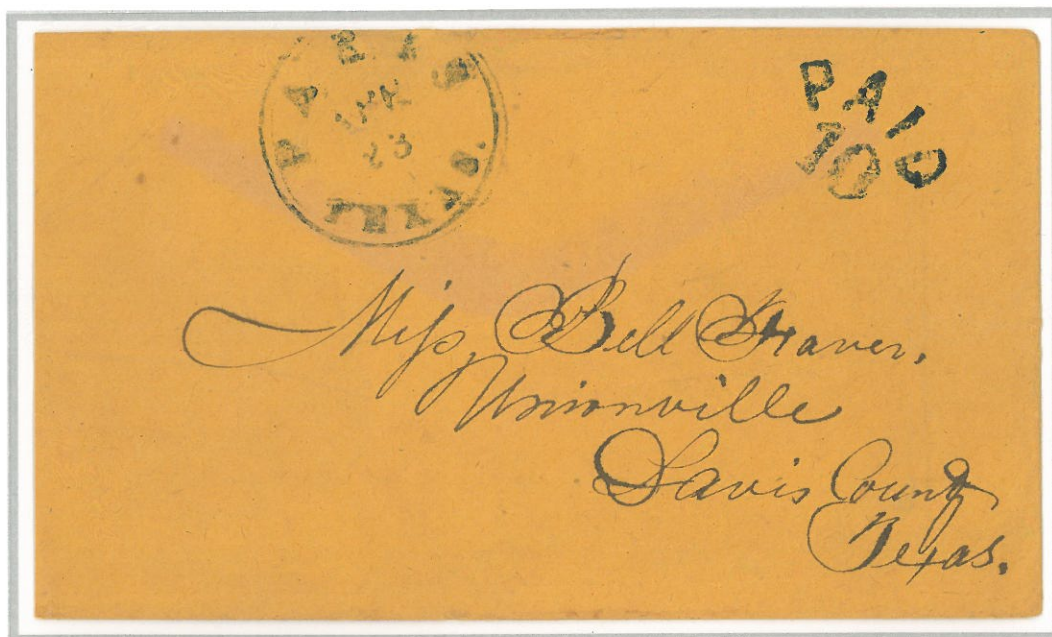 PARIS
23
TEXAS.
PAID
10
Miss, Bell
Unionville
Davis County
Texas.